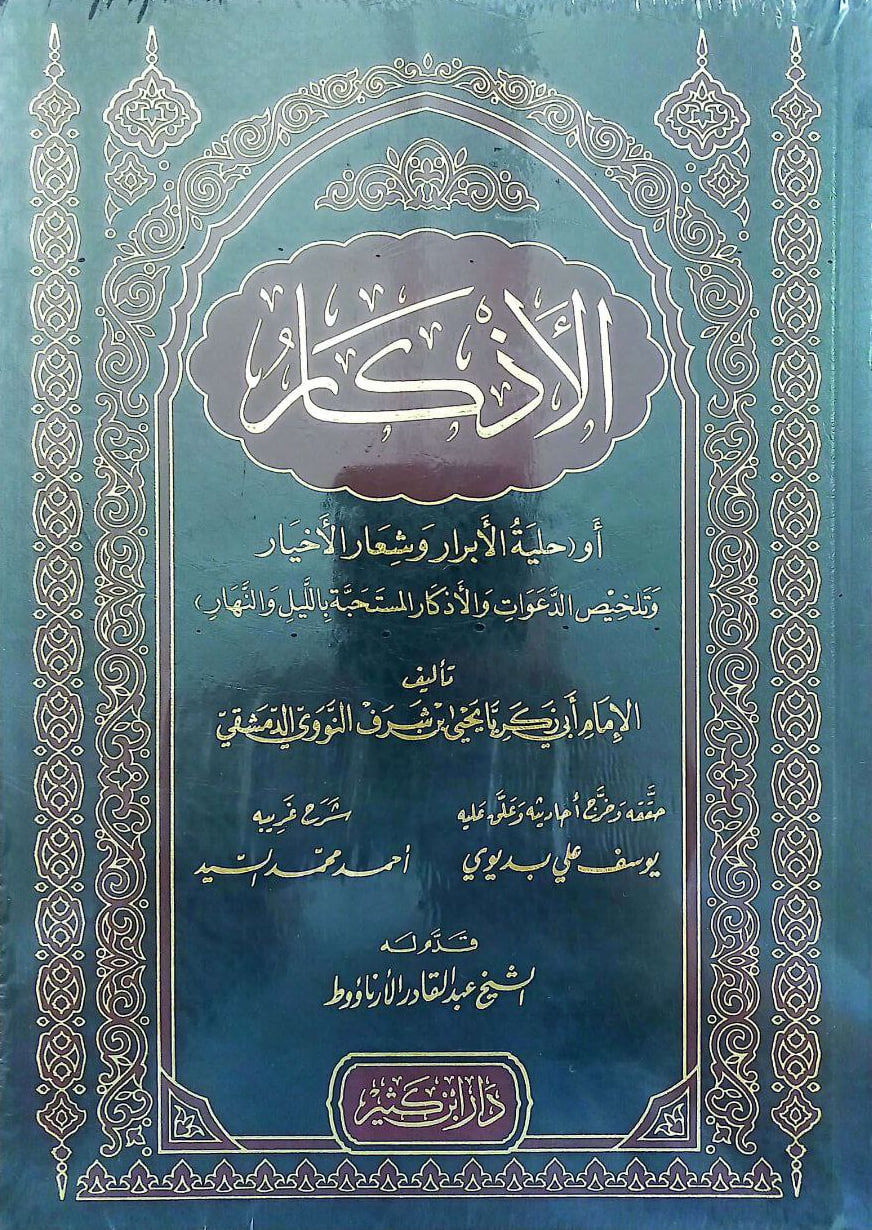 الأَذْكَارُ
أَو (حليَةُ الأَبرار وَشِعَار الأَخيَار
وَتَلخِيْص الدَّعَوَاتِ وَالأَذكَار المستَحَبَّة بِاللَّيلِ وَالنَّهَارِ)
تأليف
الإِمَام أَبي زكَرِيَّا يَحْيَىٰ بن شَرَف النَّوَوِيّ الدِّمَشقيّ
حقَّقه وَخرَّج أحاديثه وَعَلَّق عَليه
يوسف علي بديوي
شَرَحَ غَريبه
أحمد محمّد السّيد
قَدَّم لَه
الشيخ عبد القادر الأرناؤوط
دَار ابن كَثير